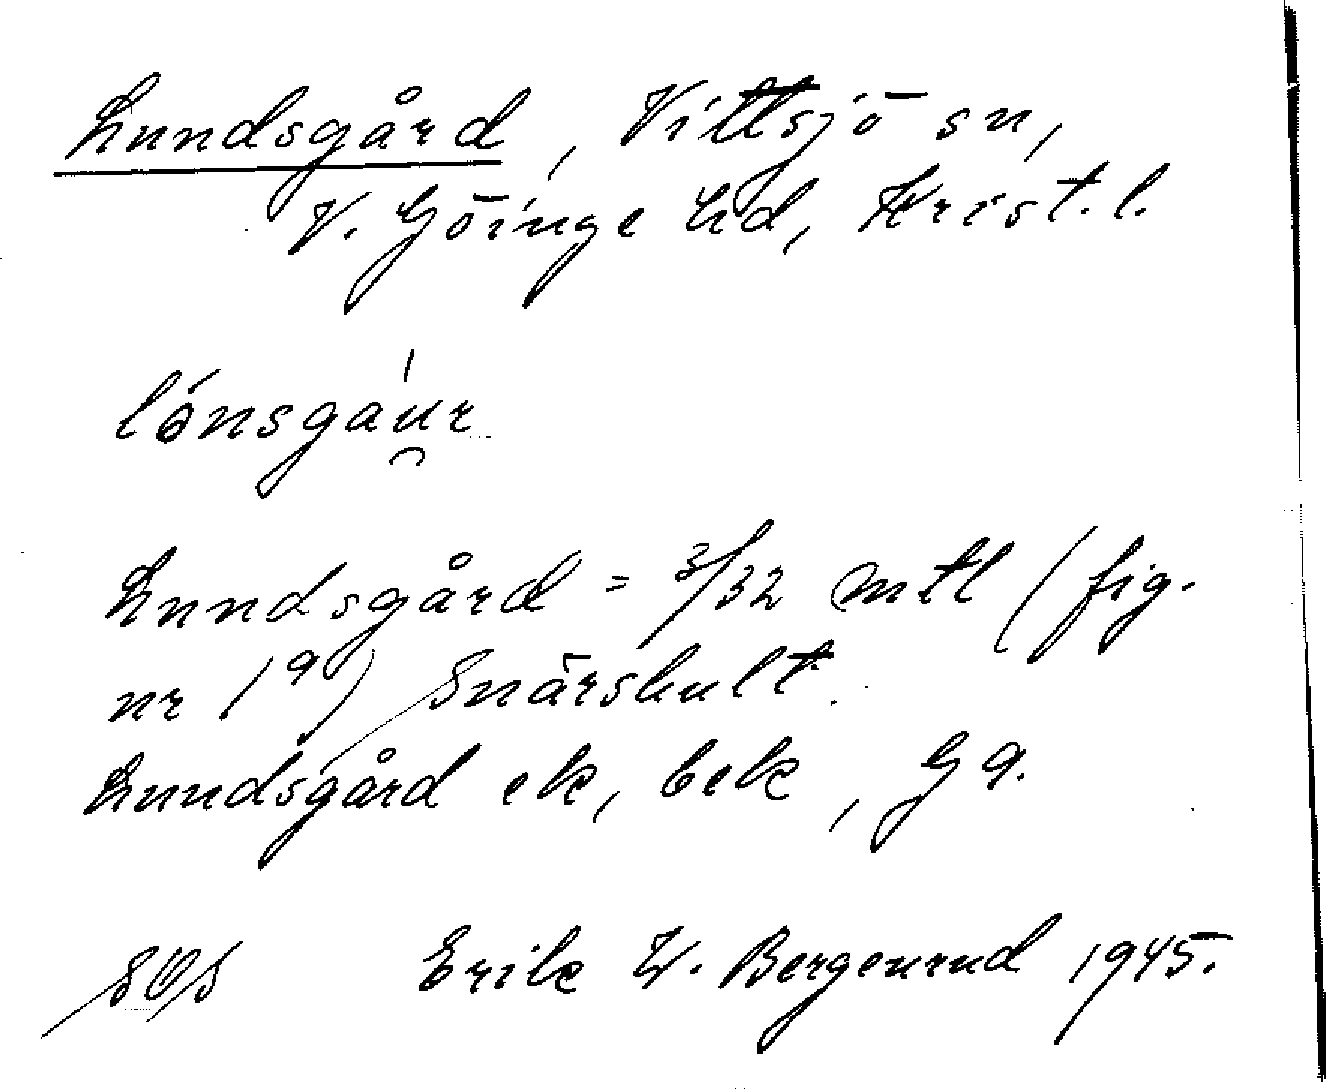 Lundsgård, Vittsjö sn,
V. Göinge hd, Krist. l.
lónsgáu̯r
Lundsgård = 3/32 mtl (fig.
nr 19) Snärshult.
Lundsgård ek, bek, G9.
Erik W. Bergenrud 1945.